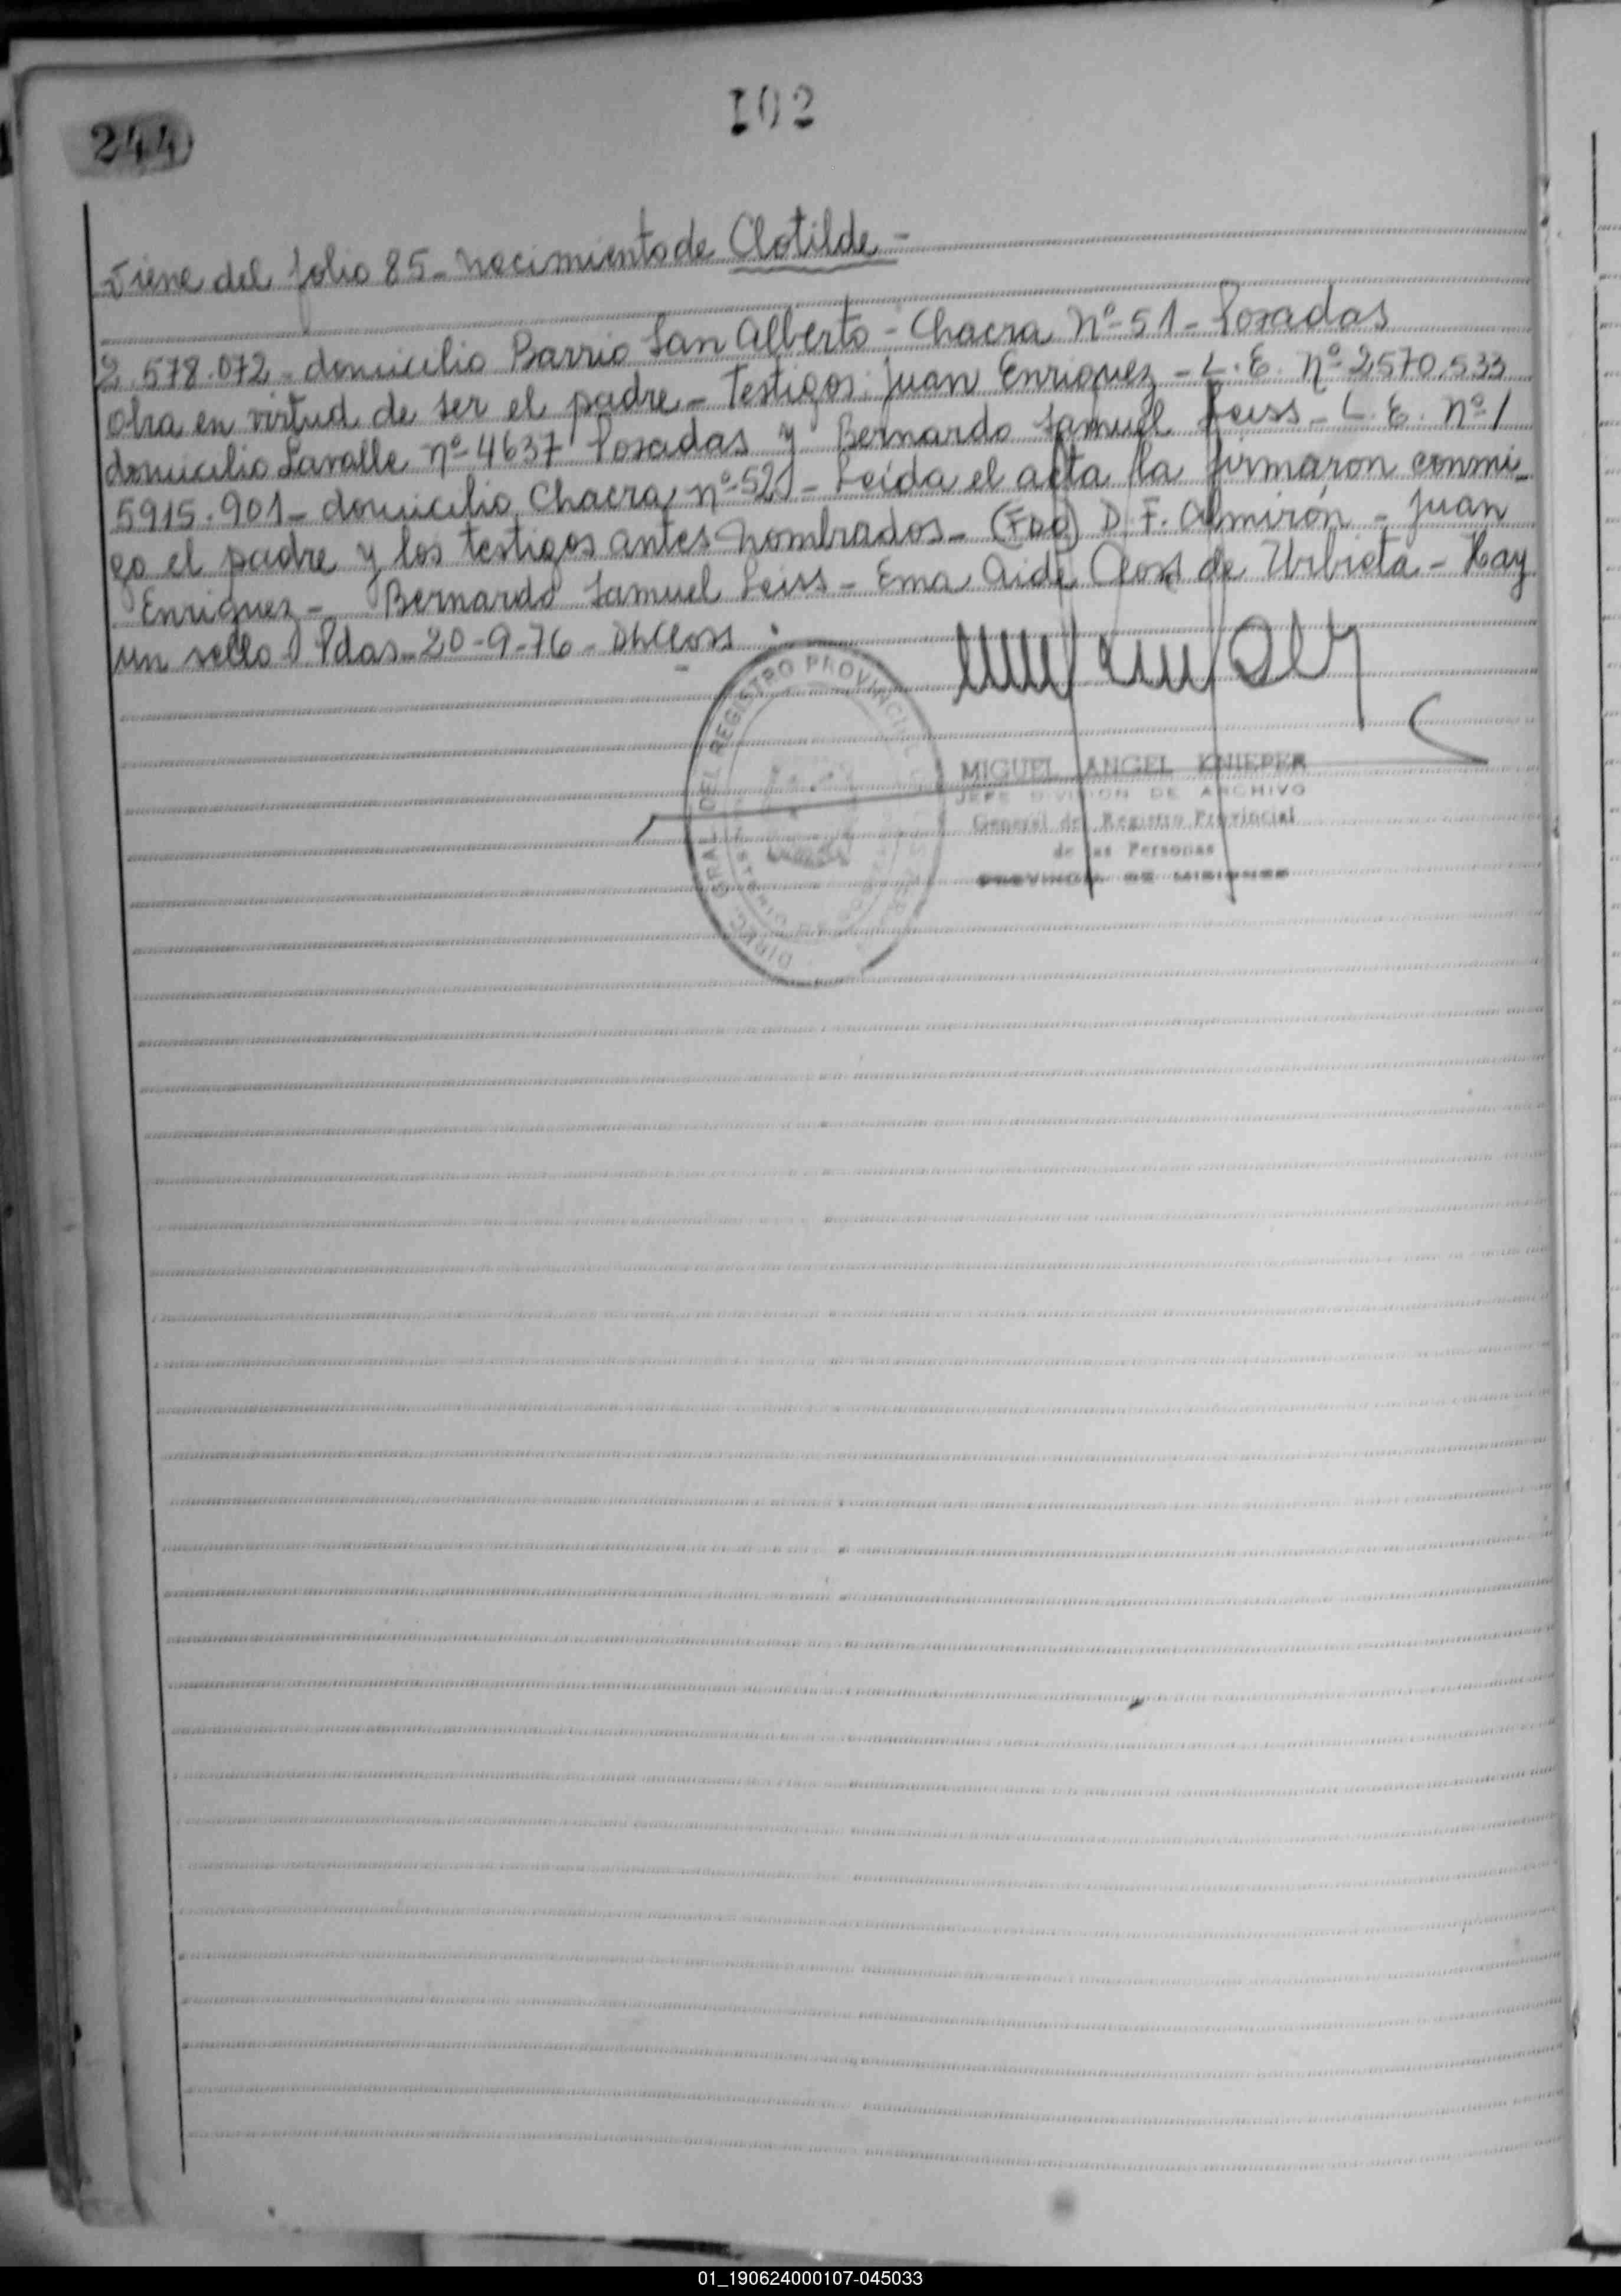 244
102
Viene del folio 85 - nacimiento de Clotilde -
2.578.072 - domicilio Barrio San Alberto - Chacra nº 51 - Posadas
obra en virtud de ser el padre - Testigos: Juan Enriquez - L. E. nº 2570.533
domicilio Lavalle nº 4637 Posadas y Bernardo Samuel Leiss - L. E. nº /
5915.901 - domicilio Chacra nº 52 - Leída el acta la firmaron conmi-
go el padre y los testigos antes nombrados - (Fdo) D. F. Almirón - Juan
Enriquez - Bernardo Samuel Leiss - Ema Aidé Closs de Urbieta - Hay
un sello - Pdas - 20-9-76 -
DIREC. GRAL. DEL REGISTRO PROVINCIAL
MIGUEL ANGEL KNIEPER
JEFE DIVISION DE ARCHIVO
General del Registro Provincial
de las Personas
PROVINCIA DE MISIONES
01_190624000107-045033